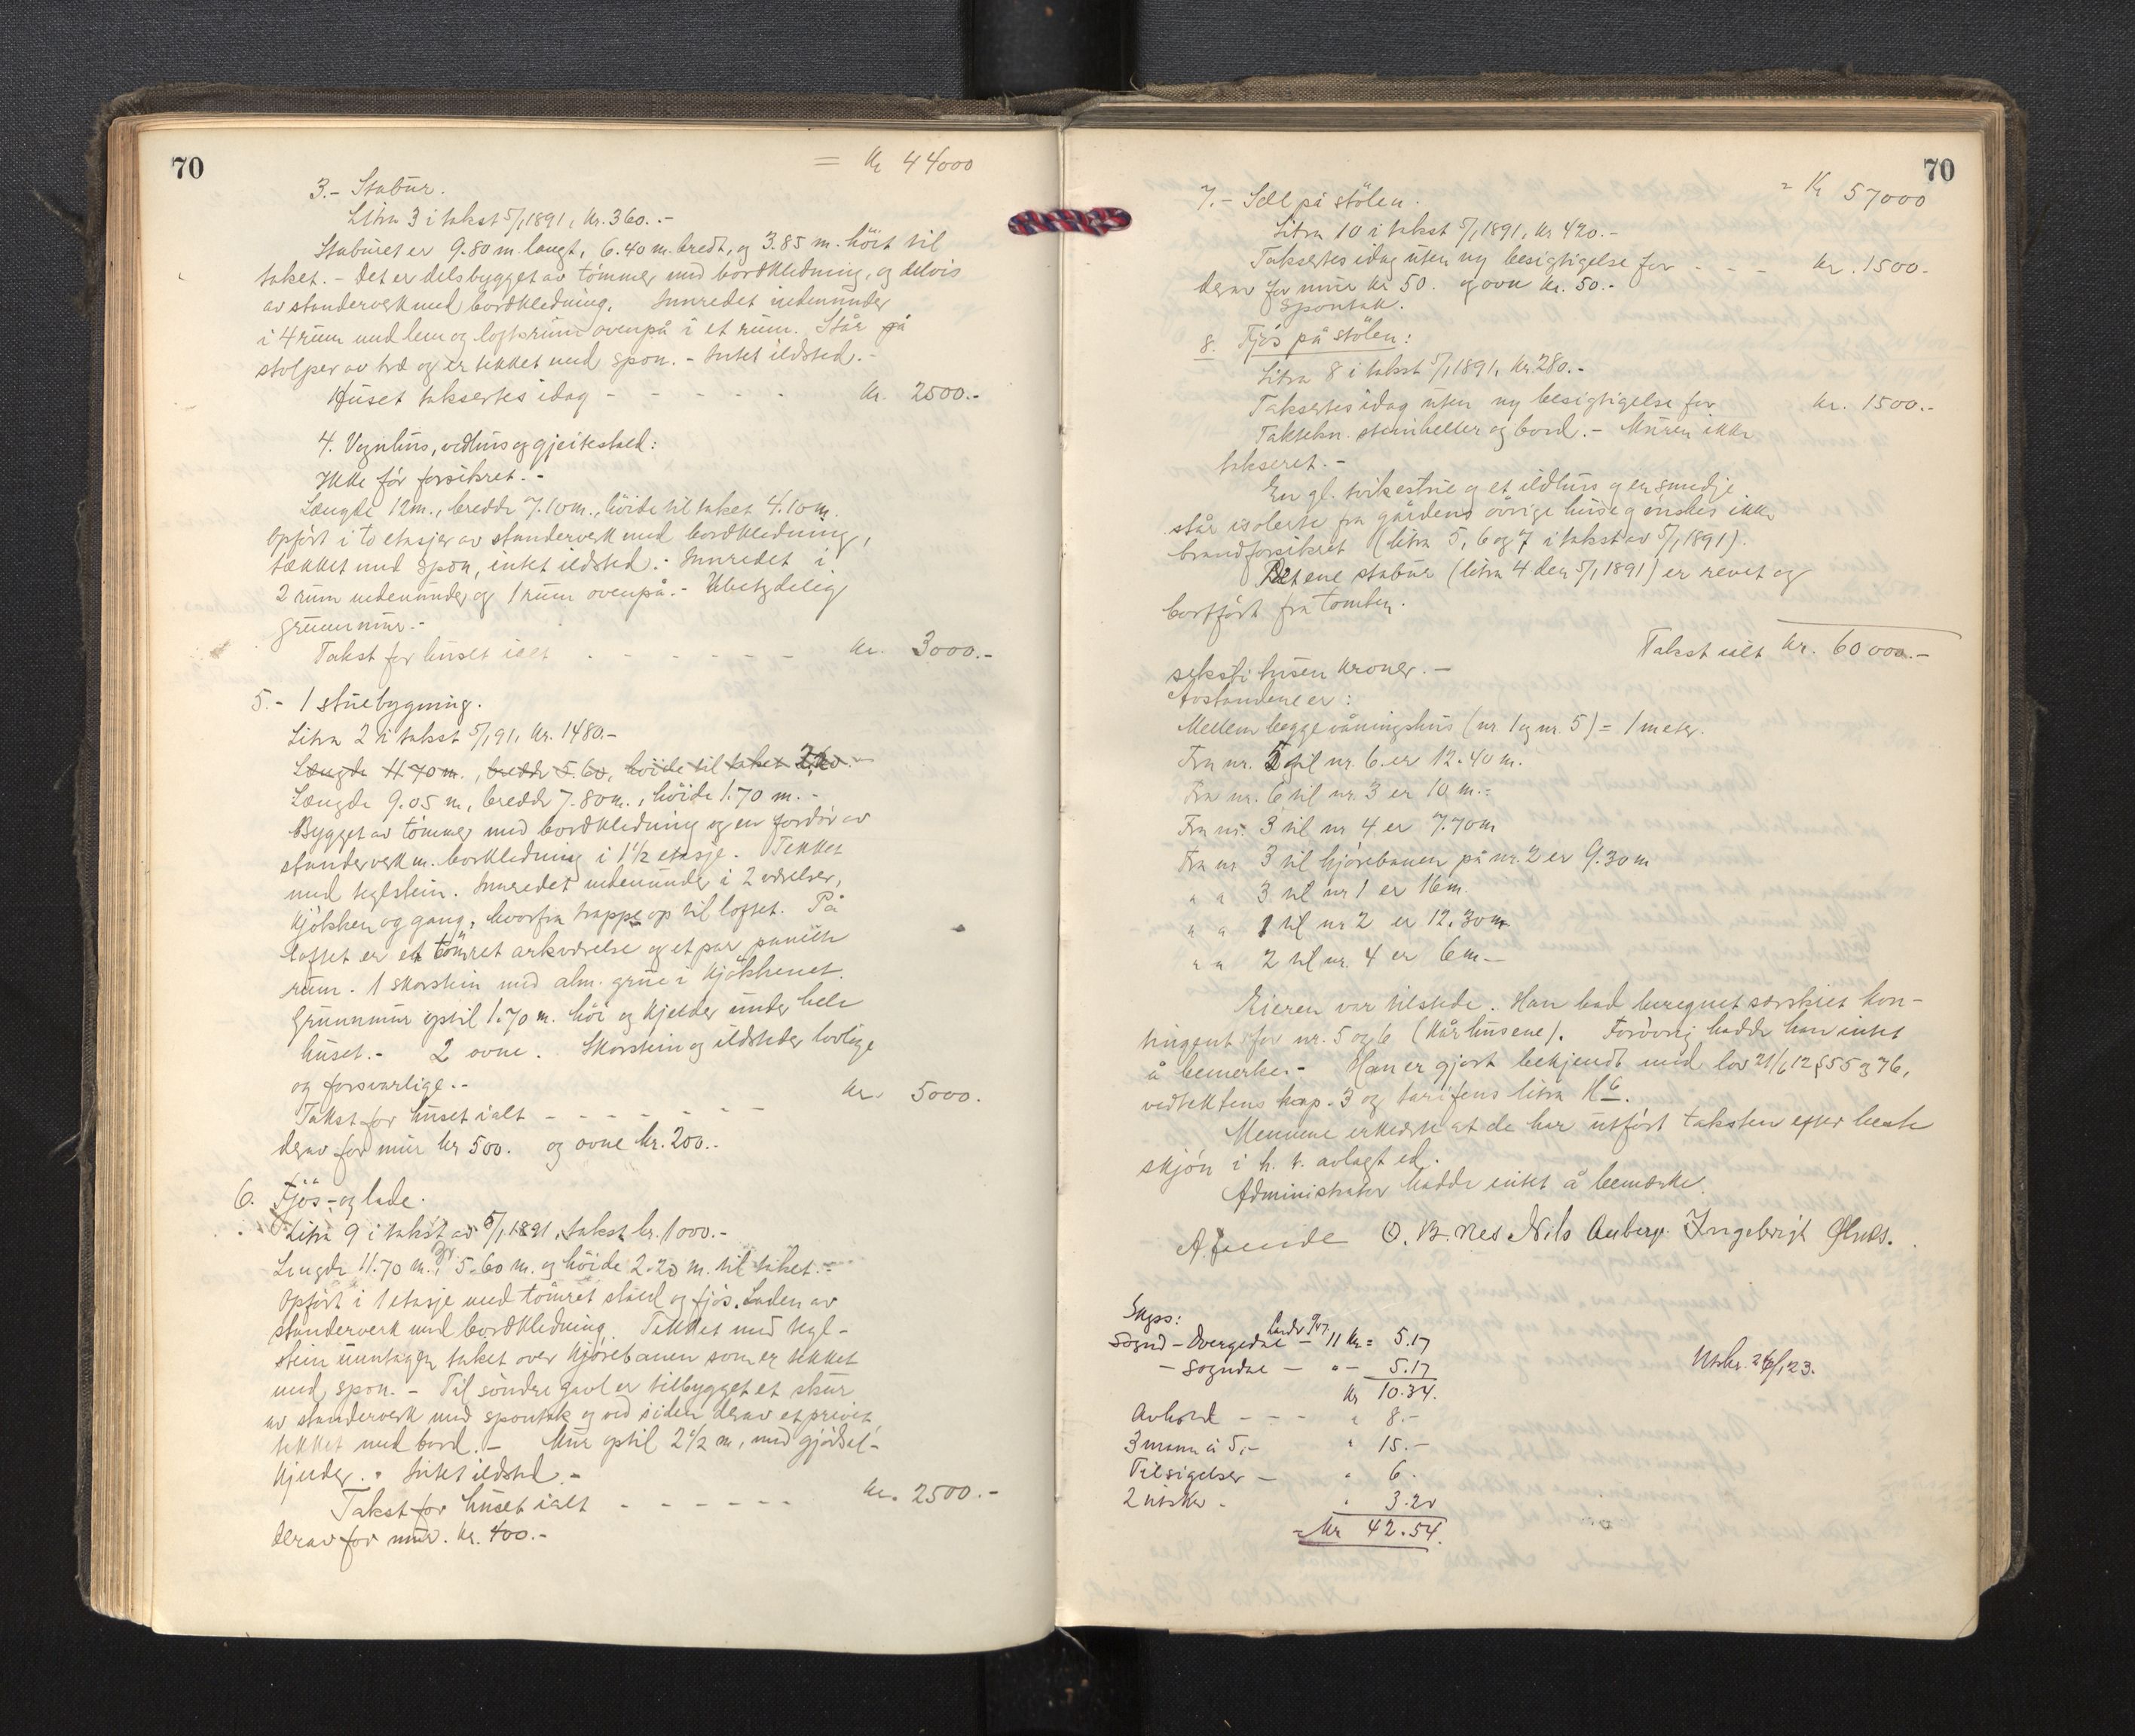 70
= Kr 44000
3.- Stabur.
Litra 3 i takst 5/1 1891, Kr. 360.-
Staburet er 9.80 m. langt, 6.40 m. bredt, og 3.85 m. höit til
taket. - Det er dels bygget av tømmer med bordkledning, og delvis
av standerverk med bordkledning. Innredet nedenunder
i 4 rum med lem og loftsrum ovenpå i et rum. Står på
stolper av træ og er tekket med spon. - Intet ildsted. -
Huset taksertes idag - - - - - Kr. 2500.-
4. Vognhus, vedhus og gjeitestald:
Ikke før forsikret. -
Længde 12 m., bredde 7.10 m., höide til taket 4.10 m.
Opført i to etasjer av standerverk med bordkledning,
tækket med spon, intet ildsted. - Innredet i
2 rum nedenunder og 1 rum ovenpå. - Ubetydelig
grunnmur. -
Takst for huset ialt - - - - - - Kr. 3000.-
5.- 1 stuebygning.
Litra 2 i takst 5/1 91, Kr. 1480.-
Længde 11.70 m., bredde 5.60, höide til taket 2.20.-
Længde 9.05 m, bredde 7.80 m., höide 1.70 m. -
Bygget av tømmer med bordkledning og en fordör av
standerverk m. borkledning i 1 1/2 etasje. Tekket
med teglstein. Innredet nedenunder i 2 værelser,
kjökken og gang, hvorfra trappe op til loftet. På
loftet er et tömret arkværelse og et par panelte
rum. 1 skorstein med alm. grue i kjökkenet.
Grunnmur optil 1.70 m. höi og kjelder under hele
huset. - 2 ovne. Skorstein og ildsteder lovlige
og forsvarlige. -
Takst for huset ialt - - - - - - - Kr. 5000.
derav for mur kr 500. og ovne kr. 200.-
6. Fjös- og lade.
Litra 9 i takst av 5/1 1891, takst kr. 1000.-
Lengde 11.70 m., br. 5.60 m. og höide 2.20 m. til taket. -
Opført i 1 etasje med tömret stald og fjös. Laden av
standerverk med bordkledning. Tekket med tegl-
stein unntagen taket over kjörebanen som er tekket
med spon. - Til söndre gavl er tilbygget et skur
av standerverk med spontak og ved siden derav et privet
tekket med bord. - Mur optil 2 1/2 m, med gjödsel-
kjelder. - Intet ildsted. -
Takst for huset ialt - - - - - - Kr. 2500.-
derav for mur. Kr. 400.-
70
= Kr 57000
7.- Sell på stölen.
Litra 10 i takst 5/1 1891, Kr 420.-
Taksertes idag uten ny besigtigelse for - - - Kr. 1500.-
derav for mur Kr 50. og ovn Kr. 50.-
Spontak.
8. Fjös på stölen:
Litra 8 i takst 5/1 1891, Kr. 280.-
Taksertes idag uten ny besigtigelse for Kr. 1500.-
Taktekn. steinheller og bord. - Muren ikke
takseret. -
En gl. svikestue og et ildhus og en smedje
står isolerte fra gårdens övrige huse og önskes ikke
brandforsikret (litra 5, 6 og 7 i takst av 5/1 1891).
Det ene stabur (litra 4 den 5/1 1891) er revet og
bortført fra tomten.
Takst ialt Kr. 60 000.-
seksti tusen kroner. -
Avstandene er:
Mellem begge våningshus (nr. 1 og nr. 5) = 1 meter.
Fra nr. 5 til nr. 6 er 12.40 m.
Fra nr. 6 til nr. 3 er 10 m. -
Fra nr. 3 til nr 4 er 7.70 m
Fra nr 3 til kjörebanen på nr. 2 er 9.30 m
" " 3 til nr 1 er 16 m.
" " 1 til nr 2 er 12.30 m
" " 2 til nr. 4 er 6 m -
Eieren var tilstede. Han bad beregnet særskiet kon-
tingent for nr. 5 og 6 (kårhusene). Forövrig hadde han intet
å bemerke. - Han er gjort bekjendt med lov 21/6 12 § 55 og 76,
vedtektens kap. 3 og tarifens litra H 6.
Mennene erklærte at de har utført taksten efter beste
skjön i h. t. avlagt ed.
Administrator hadde intet å bemærke.
O. B. Nes Nils Ingebrigt
Skyss:
Sogndal - 11 Kr = 5.17
- Sogndal - " - 5.17
Kr 10.34.
Avhold - - - " 8.-
3 mann à 5,- " 15.-
Tilsigelser - " 6.
2 utskr. - " 3.20
= Kr 42.54.
Utskr. 24/1 23.